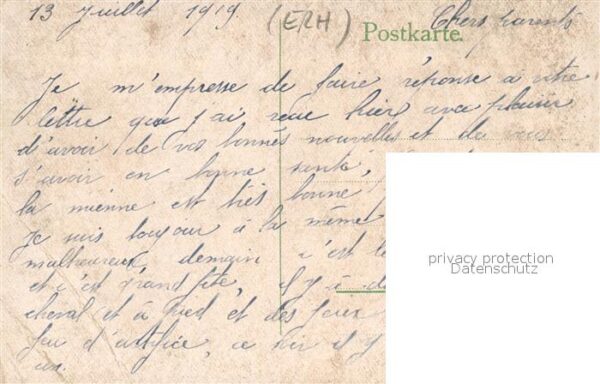 13 Juillet 1919. (ERH) Chers parents
Postkarte.
Je m'empresse de faire réponse a votre
lettre que j'ai reçue hier avec plaisir
d'avoir de vos bonnes nouvelles et de vous
s'avoir en bonne santé,
la mienne est très bonne
Je suis toujour à la même
malheureux demain c'est le
et c'est grand fête, il y à de
cheval et à pied et des feux
feu d'artifice, ce soir il y
un.
privacy protection
Datenschutz